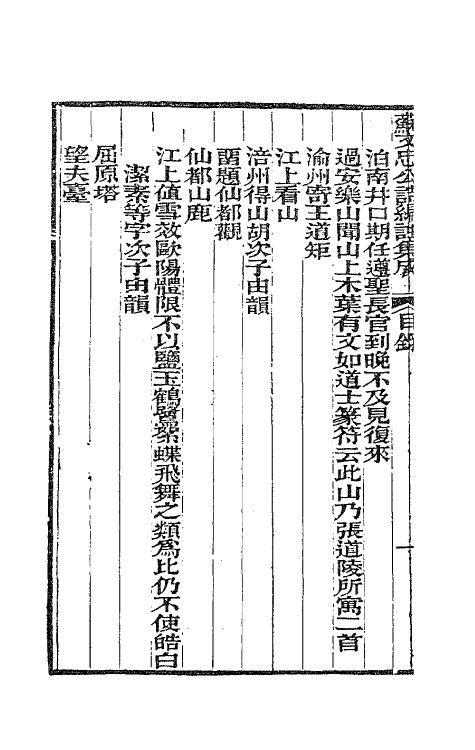 蘇文忠公詩編註集成 目錄 一
泊南井口期任遵聖長官到晚不及見復來
過安樂山聞山上木葉有文如道士篆符云此山乃張道陵所寓二首
渝州寄王道矩
江上看山
涪州得山胡次子由韻
留題仙都觀
仙都山鹿
江上值雪效歐陽體限不以鹽玉鶴鷺絮蝶飛舞之類爲比仍不使皓白
潔素等字次子由韻
屈原塔
望夫臺